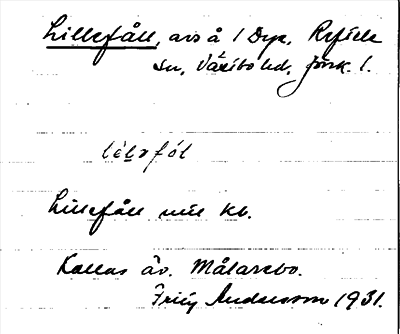 Lillefåll, avs å 1 Dyx, Reftele
sn, Västbo hd, Jönk. l.
lélɘfól
Lillefåll mil kb.
Kallas äv. Målarebo.
Fritz Andersson 1931.